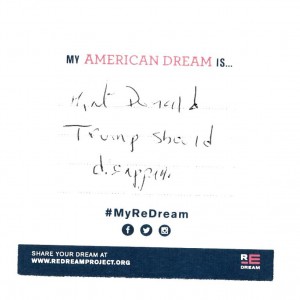 MY AMERICAN DREAM IS...
that Donald
Trump should
disappear
#MyReDream
SHARE YOUR DREAM AT
WWW.REDREAMPROJECT.ORG
RE
DREAM